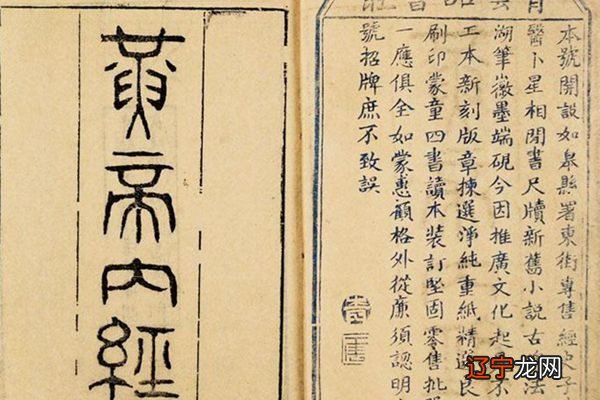 本號開設如皋縣署東街專售經史子
醫卜星相閒書尺牘新舊小說古法
湖筆徽墨端硯今因推廣文化起見不
工本新刻版章揀選淨純重紙精選良
刷印蒙童四書讀本裝訂堅固零售批
一應俱全如蒙惠顧格外從廉須認明
號招牌庶不致誤
黃帝內經
辽宁龙网